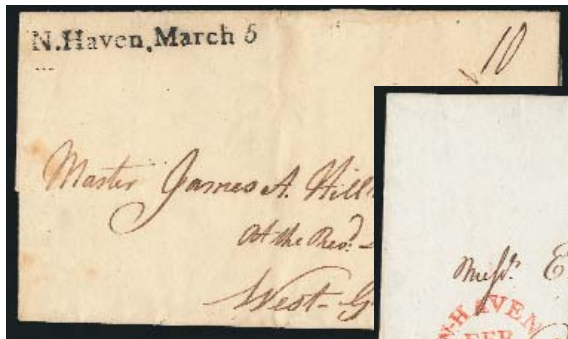 N.Haven, March 5
10
Master James A. Hill
At the Revd.
West-G
Missrs. E
N-HAVEN
FEB